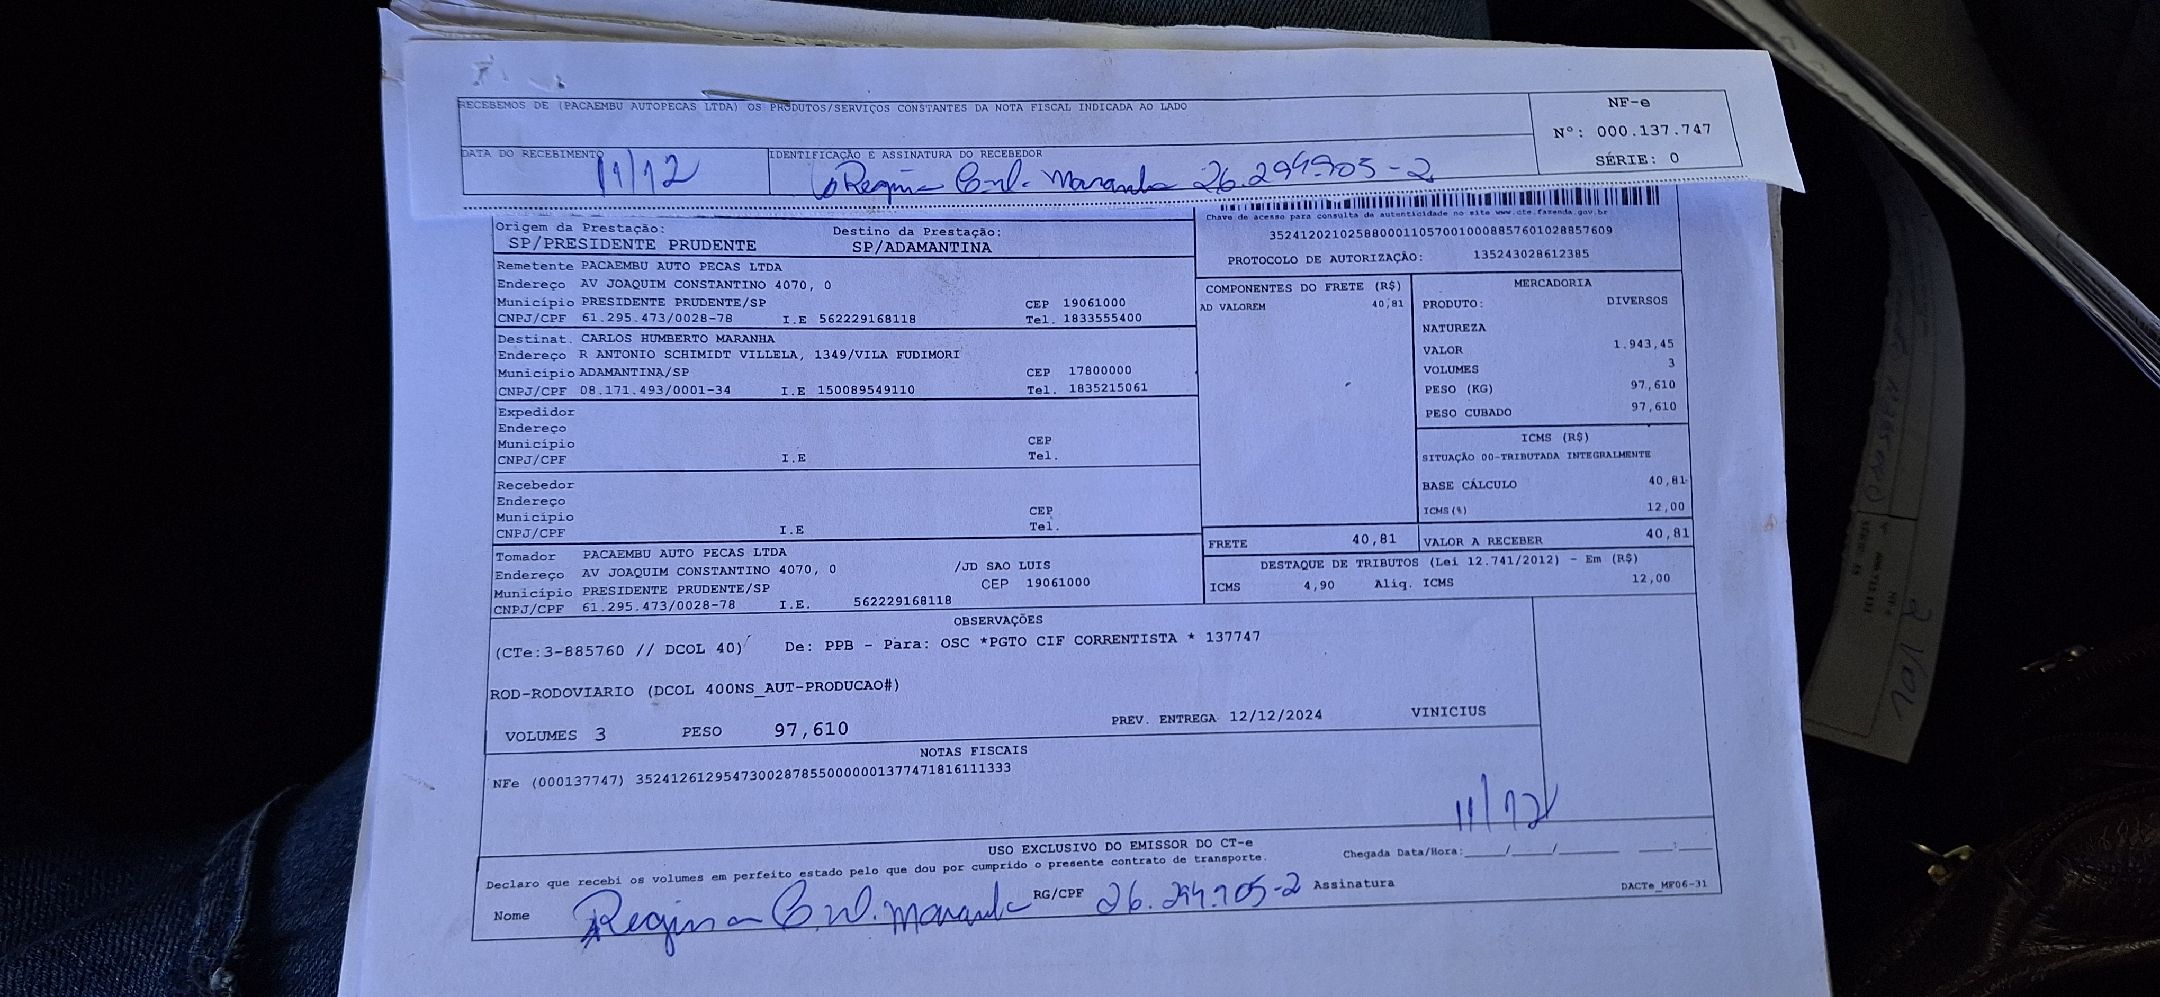 RECEBEMOS DE (PACAEMBU AUTOPECAS LTDA) OS PRODUTOS/SERVIÇOS CONSTANTES DA NOTA FISCAL INDICADA AO LADO
NF-e
Nº: 000.137.747
SÉRIE: 0
DATA DO RECEBIMENTO
11/12
IDENTIFICAÇÃO E ASSINATURA DO RECEBEDOR
Regina Maranha 26.294.905-2
Chave de acesso para consulta de autenticidade no site www.cte.fazenda.gov.br
35241202102588000110570010008857601028857609
PROTOCOLO DE AUTORIZAÇÃO: 135243028612385
Origem da Prestação: Destino da Prestação:
SP/PRESIDENTE PRUDENTE SP/ADAMANTINA
Remetente PACAEMBU AUTO PECAS LTDA
Endereço AV JOAQUIM CONSTANTINO 4070, 0
Município PRESIDENTE PRUDENTE/SP CEP 19061000
CNPJ/CPF 61.295.473/0028-78 I.E 562229168118 Tel. 1833555400
Destinat. CARLOS HUMBERTO MARANHA
Endereço R ANTONIO SCHIMIDT VILLELA, 1349/VILA FUDIMORI
Município ADAMANTINA/SP CEP 17800000
CNPJ/CPF 08.171.493/0001-34 I.E 150089549110 Tel. 1835215061
Expedidor
Endereço
Município CEP
CNPJ/CPF I.E Tel.
Recebedor
Endereço
Município CEP
CNPJ/CPF I.E Tel.
Tomador PACAEMBU AUTO PECAS LTDA
Endereço AV JOAQUIM CONSTANTINO 4070, 0 /JD SAO LUIS
Município PRESIDENTE PRUDENTE/SP CEP 19061000
CNPJ/CPF 61.295.473/0028-78 I.E. 562229168118
COMPONENTES DO FRETE (R$)
AD VALOREM 40,81
MERCADORIA
PRODUTO: DIVERSOS
NATUREZA
VALOR 1.943,45
VOLUMES 3
PESO (KG) 97,610
PESO CUBADO 97,610
ICMS (R$)
SITUAÇÃO 00-TRIBUTADA INTEGRALMENTE
BASE CÁLCULO 40,81
ICMS(%) 12,00
FRETE 40,81 VALOR A RECEBER 40,81
DESTAQUE DE TRIBUTOS (Lei 12.741/2012) - Em (R$)
ICMS 4,90 Aliq. ICMS 12,00
OBSERVAÇÕES
(CTe:3-885760 // DCOL 40) De: PPB - Para: OSC *PGTO CIF CORRENTISTA * 137747
ROD-RODOVIARIO (DCOL 400NS_AUT-PRODUCAO#)
VOLUMES 3 PESO 97,610 PREV. ENTREGA 12/12/2024 VINICIUS
NOTAS FISCAIS
NFe (000137747) 35241261295473002878550000001377471816111333
11/12
USO EXCLUSIVO DO EMISSOR DO CT-e
Declaro que recebi os volumes em perfeito estado pelo que dou por cumprido o presente contrato de transporte. Chegada Data/Hora:____/____/______ ____:____
Nome Regina Maranha RG/CPF 26.294.905-2 Assinatura DACTe_MF06-31
2 VOL